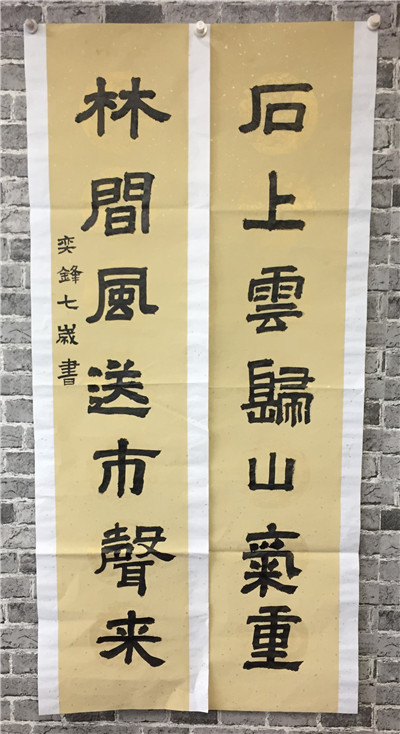 石上雲歸山氣重
林間風送市聲来
奕鋒七歲書